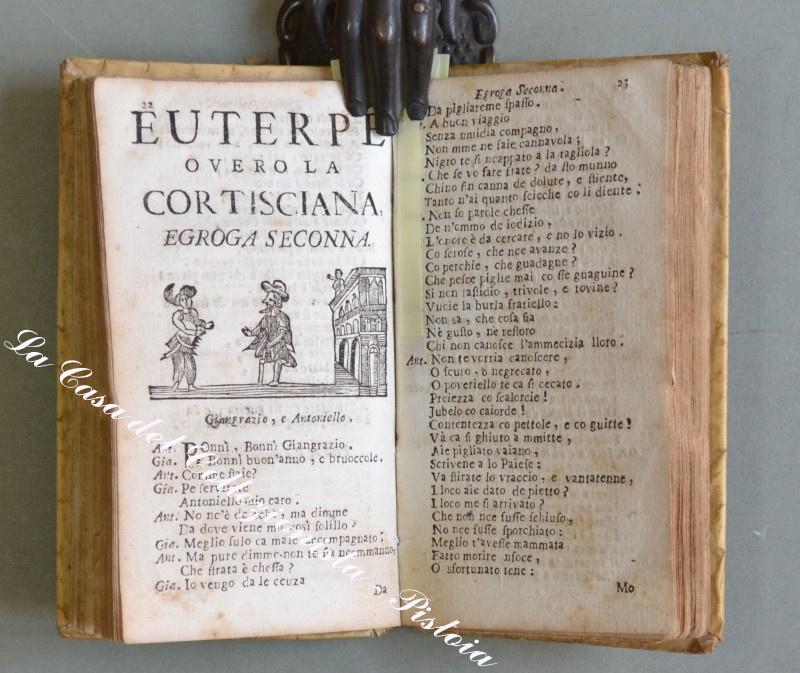 22
EUTERPE
OVERO LA
CORTISCIANA,
EGROGA SECONNA.
Giangrazio, e Antoniello.
Ant. BOnnì, Bonnì Giangrazio.
Gia. Bonnì buon'anno, e bruoccole.
Ant. Comme staie?
Gia. Pe servirete
Antoniello mio caro.
Ant. No nc'è de che, ma dimme
Da dove viene mo così solillo?
Gia. Meglio sulo ca male accompagnato.
Ant. Ma pure dimme non te sia ncommanno,
Che strata è chessa?
Gia. Io vengo da le ceuza
Da
Egroga Seconna. 23
Da pigliareme spasso.
A buon viaggio
Senza nmidia compagno,
Non mme ne saie cannavola;
Nigro te si ncappato a la tagliola?
Che se vo fare frate? da sto munno
Chino sin canna de dolure, e stiente,
Tanto n'ai quanto scicche co li diente.
Non so parole chesse
De n'ommo de iodizio,
L'onore è da cercare, e no lo vizio.
Co scrose, che nce avanze?
Co perchie, che guadagne?
Che pesce piglie mai co sse guaguine?
Si non fastidio, trivole, e rovine?
Vucie la burla fratiello:
Non sa, che cosa sia
Nè gusto, nè restoro
Chi non canosce l'ammecizia lloro.
Ant. Non te vorria canoscere,
O scuro, o negrecato,
O poveriello te ca si cecato.
Preiezza co scalorcie!
Jubelo co caiorde!
Contentezza co pettole, e co guitte!
Và ca si ghiuto a mmitte,
Aie pigliato vaiano,
Scrivene a lo Paiese:
Va stirate lo vraccio, e vantatenne,
Lloco aie dato de pietto?
Lloco me si arrivato?
Che non nce fusse schiuso,
No nce fusse sporchiato:
Meglio t'avesse mammata
Fatto morire nfoce,
O sfortunato tene:
Mo
La Casa del Collezionista - Pistoia